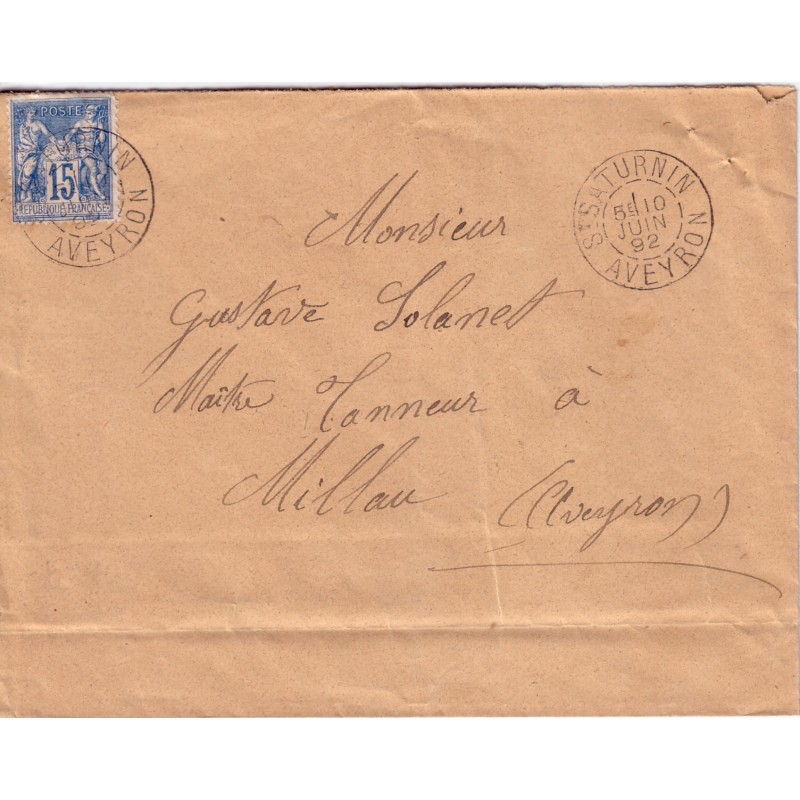 POSTES
15
REPUBLIQUE FRANÇAISE
AVEYRON
St SATURNIN
5E 10
JUIN
92
AVEYRON
Monsieur
Gustave Solanet
Maître Tanneur à
Millau (Aveyron)